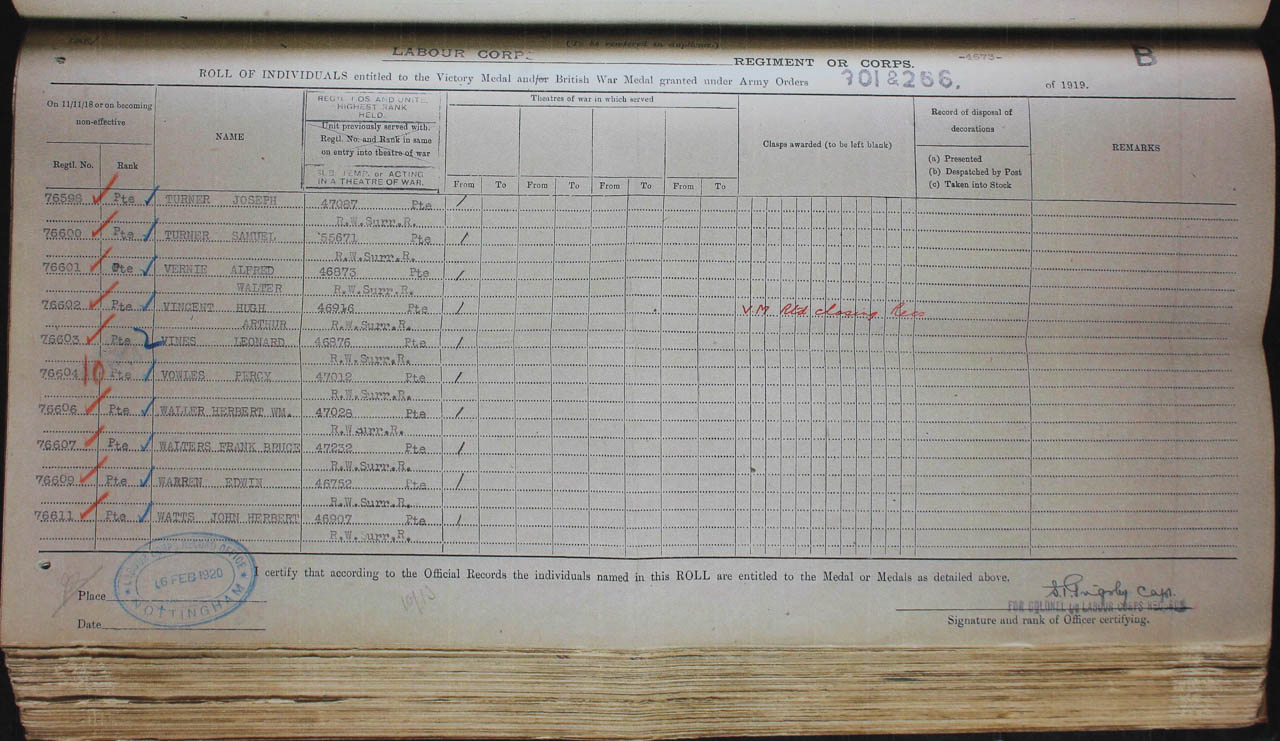 (To be rendered in duplicate.)
LABOUR CORPS REGIMENT OR CORPS. -4673- B
ROLL OF INDIVIDUALS entitled to the Victory Medal and/or British War Medal granted under Army Orders 301&266. of 1919.
On 11/11/18 or on becoming non-effective
Regtl. No. Rank
NAME
REGTL NOS AND UNITS.
HIGHEST RANK
HELD.
Unit previously served with.
Regtl. No. and Rank in same
on entry into theatre of war
SUB. TEMP. or ACTING
IN A THEATRE OF WAR.
Theatres of war in which served
From To From To From To From To
Clasps awarded (to be left blank)
Record of disposal of decorations
(a) Presented
(b) Despatched by Post
(c) Taken into Stock
REMARKS
76598 Pte TURNER JOSEPH 47087 Pte /
R.W.Surr.R.
76600 Pte TURNER SAMUEL 55671 Pte /
R.W.Surr.R.
76601 Pte VERNIE ALFRED 46873 Pte /
WALTER R.W.Surr.R.
76602 Pte VINCENT HUGH 46916 Pte / V.M. Rtd closing Recs
ARTHUR R.W.Surr.R.
76603 Pte VINES LEONARD 46876 Pte /
R.W.Surr.R.
76604 10 Pte VOWLES PERCY 47012 Pte /
R.W.Surr.R.
76606 Pte WALLER HERBERT WM. 47028 Pte /
R.W.Surr.R.
76607 Pte WALTERS FRANK BRUCE 47232 Pte /
R.W.Surr.R.
76609 Pte WARREN EDWIN 46752 Pte /
R.W.Surr.R.
76611 Pte WATTS JOHN HERBERT 46907 Pte /
R.W.Surr.R.
LABOUR CORPS RECORD OFFICE
16 FEB 1920
NOTTINGHAM
I certify that according to the Official Records the individuals named in this ROLL are entitled to the Medal or Medals as detailed above.
Place
Date
Capt.
FOR COLONEL i/c LABOUR CORPS RECORDS
Signature and rank of Officer certifying.